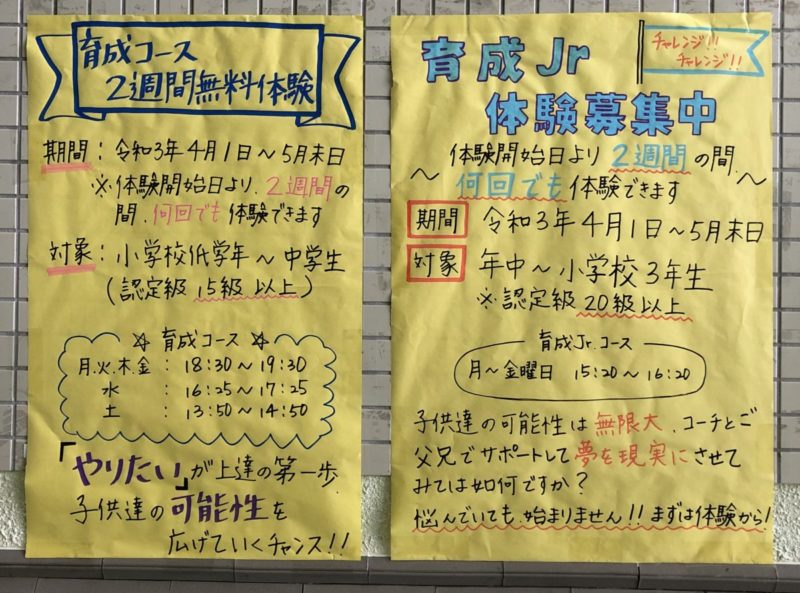 育成コース
2週間無料体験
期間:令和3年4月1日～5月末日
※体験開始日より、2週間の
間、何回でも体験できます
対象:小学校低学年～中学生
(認定級15級以上)
☆育成コース☆
月.火.木.金:18:30～19:30
水:16:25～17:25
土:13:50～14:50
「やりたい」が上達の第一歩、
子供達の可能性を
広げていくチャンス!!
チャレンジ!!
チャレンジ!!
育成Jr
体験募集中
～体験開始日より2週間の間、
何回でも体験できます～
期間 令和3年4月1日～5月末日
対象 年中～小学校3年生
※認定級20級以上
育成Jr.コース
月～金曜日 15:20～16:20
子供達の可能性は無限大、コーチとご
父兄でサポートして夢を現実にさせて
みては如何ですか?
悩んでいても、始まりません!!まずは体験から!